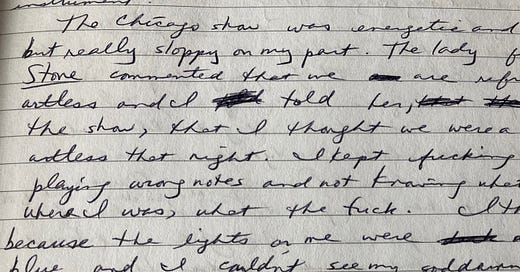 instrument.
The Chicago show was energetic and
but really sloppy on my part. The lady f
Stone commented that we are refr
artless and I told her,
the show, that I thought we were a
artless that night. I kept fucking
playing wrong notes and not knowing what
where I was, what the fuck. I th
because the lights on me were
blue and I couldn't see my goddamn